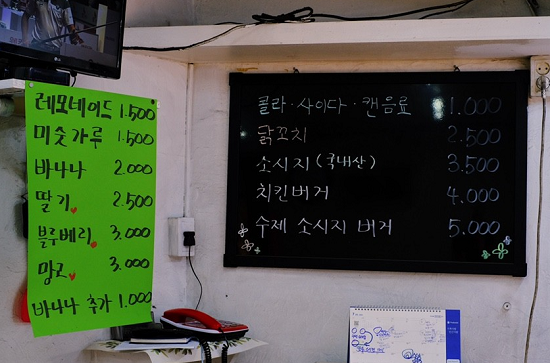 레모네이드 1.500
미숫가루 1.500
바나나 2.000
딸기 2.500
블루베리 3.000
망고 3.000
바나나 추가 1.000
콜라·사이다·캔음료 1.000
닭꼬치 2.500
소시지(국내산) 3.500
치킨버거 4.000
수제 소시지 버거 5.000